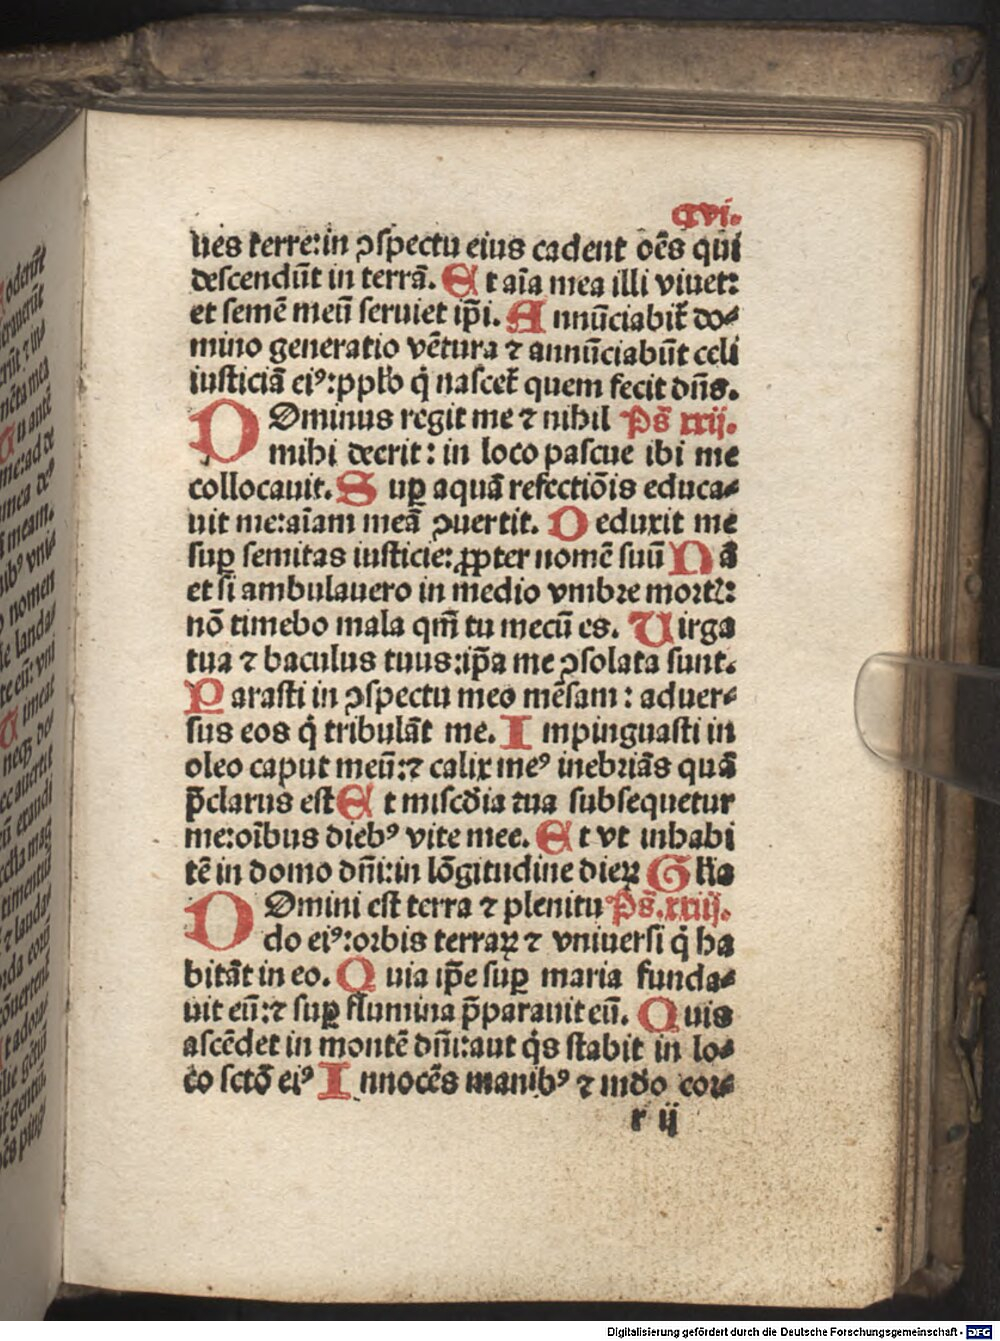 cxvi.
ues terre:in ꝯspectu eius cadent oēs qui
descendūt in terrā. Et aīa mea illi viuet:
et semē meū seruiet ip̄i. Annūciabit̄ do⸗
mino generatio vētura ⁊ annūciabūt celi
iusticiā eiꝰ:pplo q̇ nascet̄ quem fecit dn̄s.
DOminus regit me ⁊ nihil Ps̄ xxij.
mihi deerit: in loco pascue ibi me
collocauit. Suꝑ aquā refectiōis educa⸗
uit me:aīam meā ꝯuertit. Deduxit me
suꝑ semitas iusticie:ꝓpter nomē suū Nā
et si ambulauero in medio vmbre mortꝭ:
nō timebo mala qm̄ tu mecū es. Virga
tua ⁊ baculus tuus:ip̄a me ꝯsolata sunt.
Parasti in ꝯspectu meo mēsam: aduer⸗
sus eos q̇ tribulāt me. Impinguasti in
oleo caput meū:⁊ calix meꝰ inebriās quā
p̄clarus est Et misc̄dia tua subsequetur
me:oībus diebꝰ vite mee. Et vt inhabi
tē in domo dn̄i:in lōgitudine dieꝝ Glia
DOmini est terra ⁊ plenitu Ps̄.xxiij.
do eiꝰ:orbis terraꝝ ⁊ vniuersi q̇ ha
bitāt in eo. Quia ip̄e suꝑ maria funda⸗
uit eū:⁊ suꝑ flumina p̄parauit eū. Quis
ascēdet in montē dn̄i:aut q̇s stabit in lo⸗
co sctō eiꝰ Innocēs manibꝰ ⁊ mūdo cor⸗
r ij
Digitalisierung gefördert durch die Deutsche Forschungsgemeinschaft - DFG